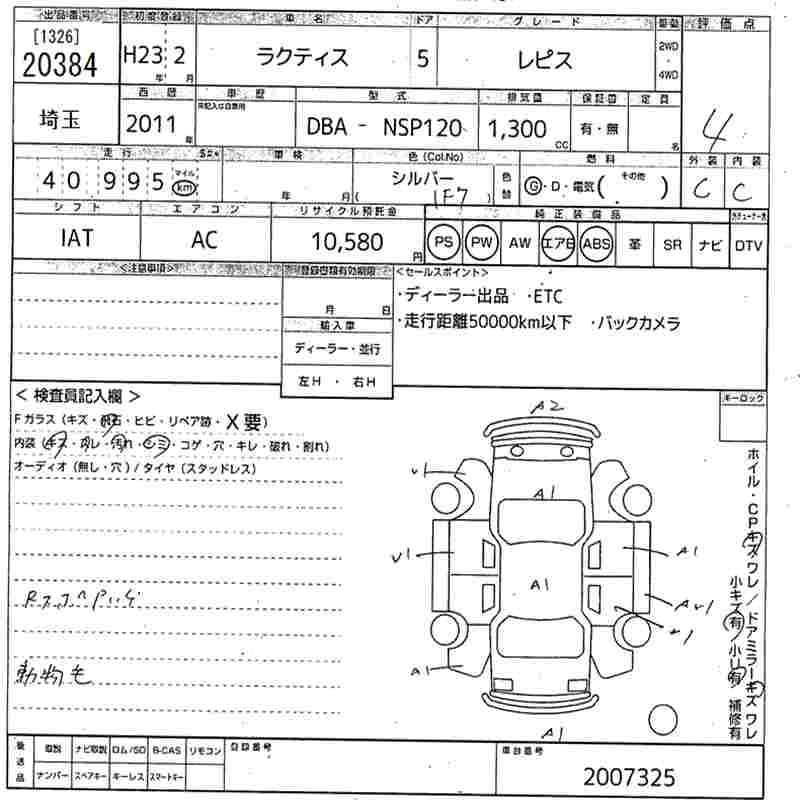 出品番号 初度登録 車名 ドア グレード 駆動 評価点
[1326]
20384 H23 2 ラクティス 5 レピス 2WD・4WD
年 月
埼玉 西暦 車歴 型式 排気量 保証書 定員
未記入は自家用
2011年 DBA - NSP120 1,300cc 有・無 名 4
走行 車検 色(Col.No) 燃料 外装 内装
40 995 マイル km 年 月 シルバー 色替 G・D・電気( その他 ) C C
( 1F7 )
シフト エアコン リサイクル預託金 純正装備品
IAT AC 10,580円 PS PW AW エアB ABS 革 SR ナビ DTV
<注意事項> 登録書類有効期限 <セールスポイント>
・ディーラー出品 ・ETC
月 日 ・走行距離50000km以下 ・バックカメラ
輸入車
ディーラー・並行
左H ・ 右H
<検査員記入欄> キーロック
Fガラス(キズ・飛石・ヒビ・リペア跡・X要)
内装(キズ・ヨレ・汚れ・シミ・コゲ・穴・キレ・破れ・割れ)
オーディオ(無し・穴)/タイヤ(スタッドレス)
A2
U1
A1
U1
A1
A1
A1
A1
ホイル・CPキズワレ/ドアミラーキズワレ
小キズ有/小凹有 補修有
動物毛
後送品 取説 ナビ取説 ロム/SD B-CAS リモコン 登録番号 車台番号
ナンバー スペアキー キーレス スマートキー
2007325